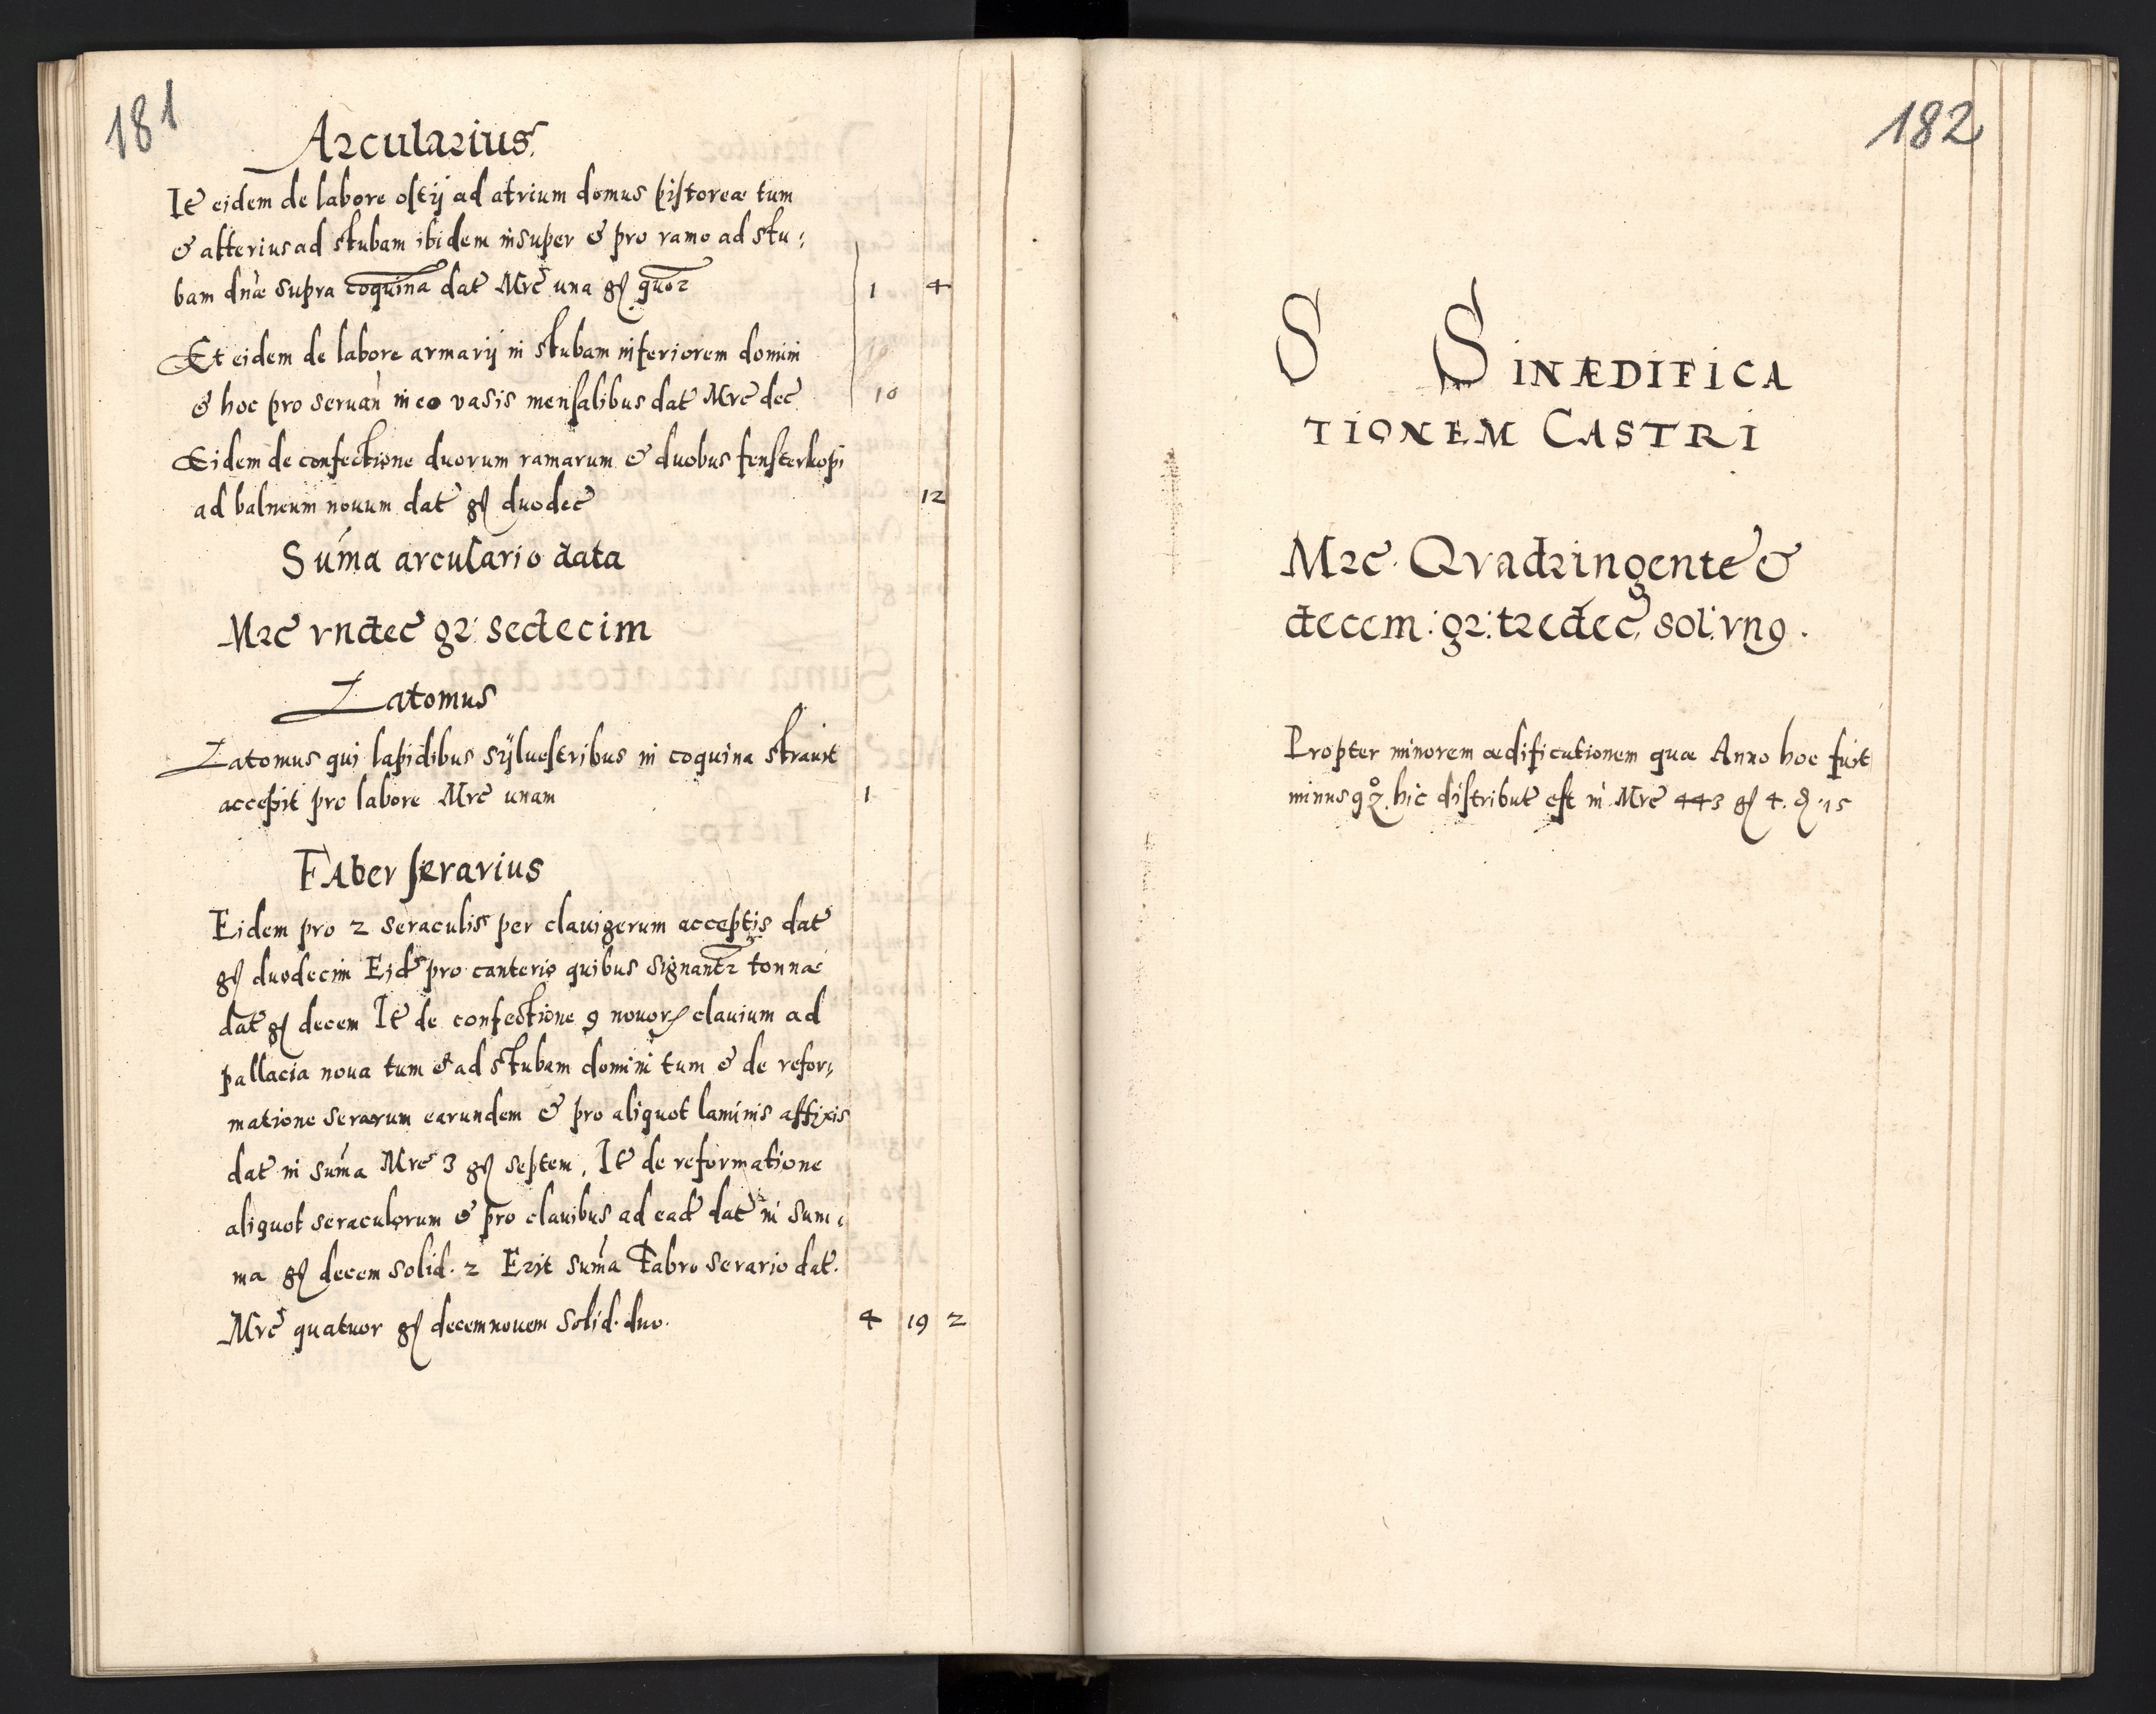 181
Arcularius
Itē eidem de labore ostij ad atrium domus pistoreæ tum
& alterius ad stubam ibidem insuper & pro ramo ad stu:
bam dnæ supra coquina dat Mrc una gɍ quor 1 4
Et eidem de labore armarij in stubam inferiorem domini
& hoc pro seruan in eo vasis mensalibus dat Mrc dec 10
Eidem de confectione duorum ramarum & duobus fensterkopi
ad balneum nouum dat gɍ duodec 12
Suma arculario data
Mrc vndec gr: sedecim
Latomus
Latomus qui lapidibus sÿluestribus in coquina strauit
accepit pro labore Mrc unam 1
Faber serarius
Eidem pro 2 seraculis per clauigerum acceptis dat
gɍ duodecim Eid pro canterio quibus signantr tonnæ
dat gɍ decem Itē de confectione 9 nouoꝝ clauium ad
pallacia noua tum & ad stubam domini tum & de refor:
matione serarum earundem & pro aliquot laminis affixis
dat in suma Mrc 3 gɍ septem, Itē de reformatione
aliquot seraculorum & pro clauibus ad ead dat in sum:
ma gɍ decem solid. 2 Erit suma Fabro serario dat.
Mrc quatuor gɍ decemnouem solid. duo. 4 19 2
182
S S INÆDIFICA
TIONEM CASTRI
Mrc. Qvadringente &
decem: gr: tredec, sol: vn9.
Propter minorem ædificationem quæ Anno hoc fuit
minus hic distribut est in Mrc 443 gɍ 4. ₰ 15